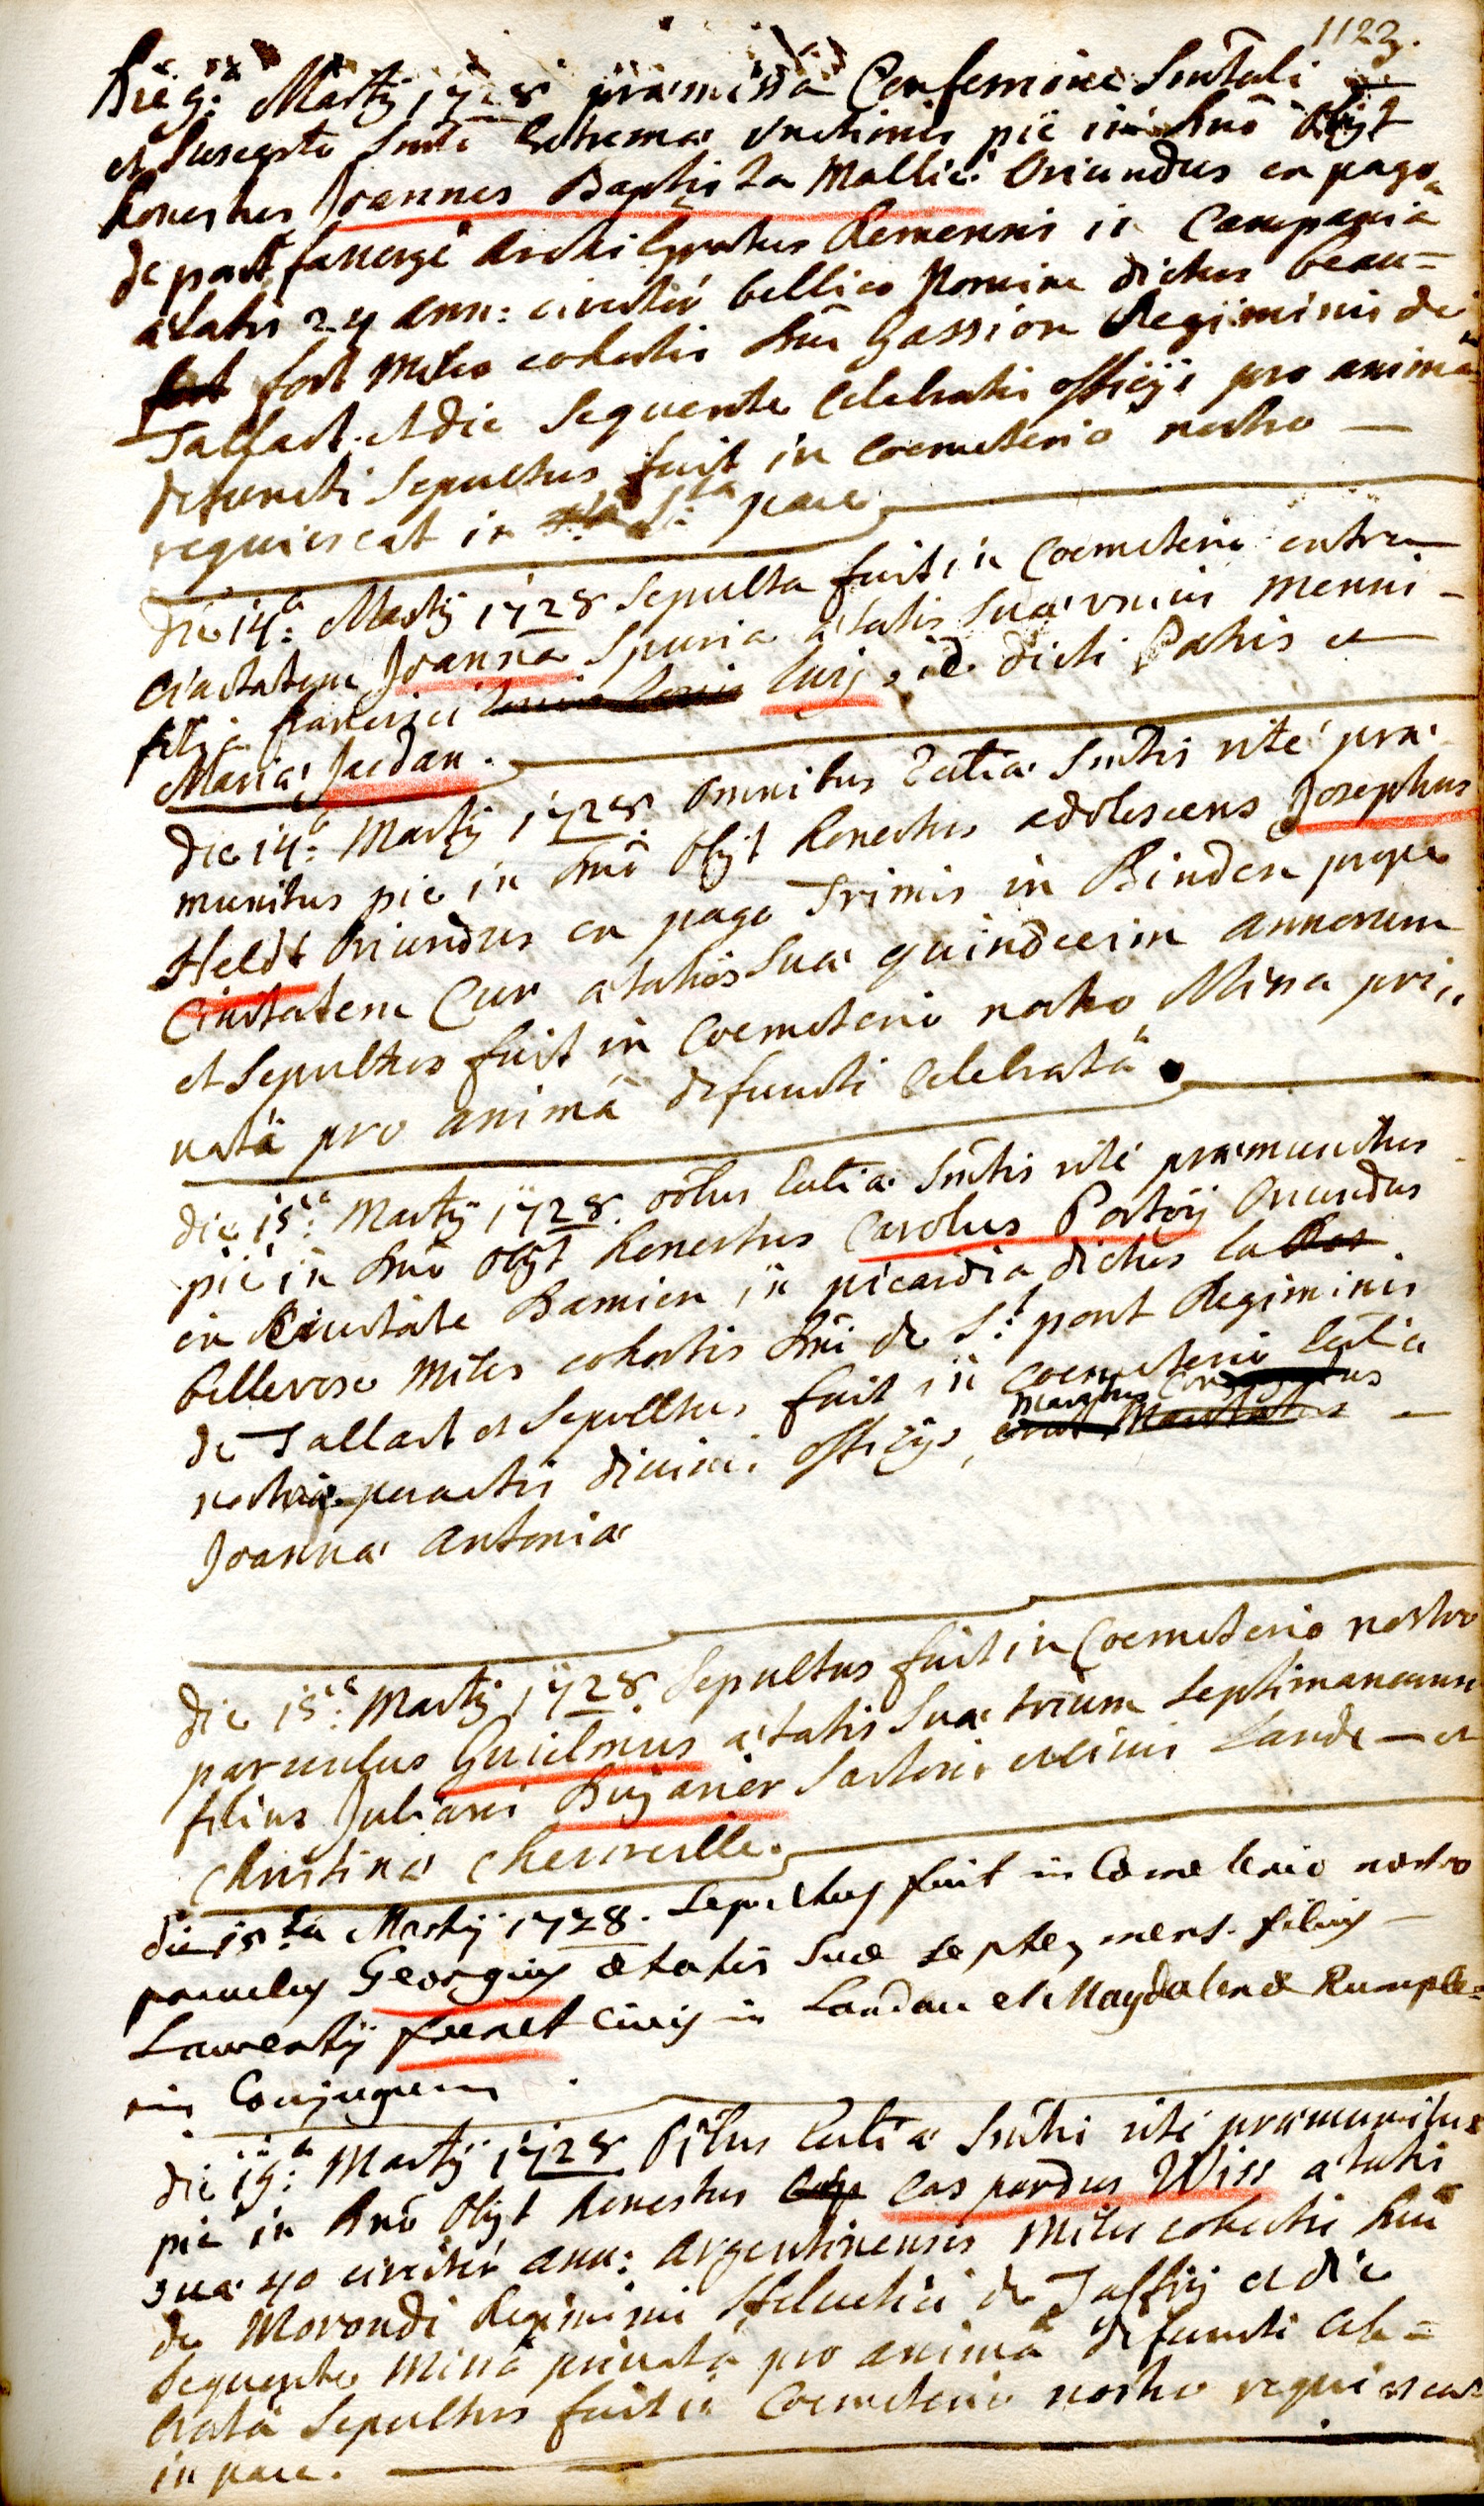 1123.
Die 9:a Martij 1728 praemissâ Confessione Smtali
et suscepto Smto Extremae Unctionis piè in Dnô Obijt
honestus Joannes Baptista Mallié Oriundus ex pago
de pont favergé Archi Epatus Remensis in Campania
aetatis 24 ann: circiter bellico Nomine dictus beau=
fort Miles cohortis Dni Gassion Regiminis de
Tallart. et die sequente Celebratis officijs pro animâ
defuncti Sepultus fuit in Coemeterio nostro —
requiescat in S:ta pace
Die 14:a Martij 1728 Sepulta fuit in Coemeterio extra
Civitatem Joanna Spuria aetatis Suae unius Mensis
filia francisci Luij, dicti Patris et
Maria Judan.
Die 14:a Martij 1728 Omnibus Ecctiae Smtis rite prae
munitus pie in Dnô Obijt honestus adolescens Josephus
Heldt Oriundus ex pago Trimis in Binden prope
Civitatem Cur aetatis Suae quindecim annorum
et Sepultus fuit in Coemeterio nostro Missa pri,,
vatâ pro animâ defuncti Celebratâ.
die 15:a Martij 1728. oîbus Ecctiae Smtis rité praemunitus
piè in Dnô Obijt honestus Carolus Portoij Oriundus
ex Civitate Damien in picardia dictus la
bellerose Miles cohortis Dni de S:t pont Regiminis
de Tallart et Sepultus fuit in Coemeterio Ecctiae
nostrae peractis divinis officijs, Maritus
Joannae Antoniae
die 15:a Martij 1728. Sepultus fuit in Coemeterio nostro
parvulus Guielmus aetatis Suae trium Septimanarum
filius Juliani Dujarier Sartoris et Civis Lande — et
Christina Cherverelle.
die 15ta Martij 1728. Sepultus fuit in Coemeterio nostro
parvulus Georgius aetatis Suae septem mens. filius —
Laurentij frenet Civis in Landau et Magdalenae Rumple=
rin Conjugum.
die 19:a Martij 1728 Oîbus Ecctiae Smtis rité praemunitus
piè in Dnô Obijt honestus Caspardus Wiss aetatis
suae 40 circiter ann: Argentinensis Miles cohortis Dni
de Morondi Regiminis Helvetici de Jaffij et die
sequente Missâ privatâ pro animâ defuncti Cele=
bratâ Sepultus fuit in Coemeterio nostro requiescat
in pace.